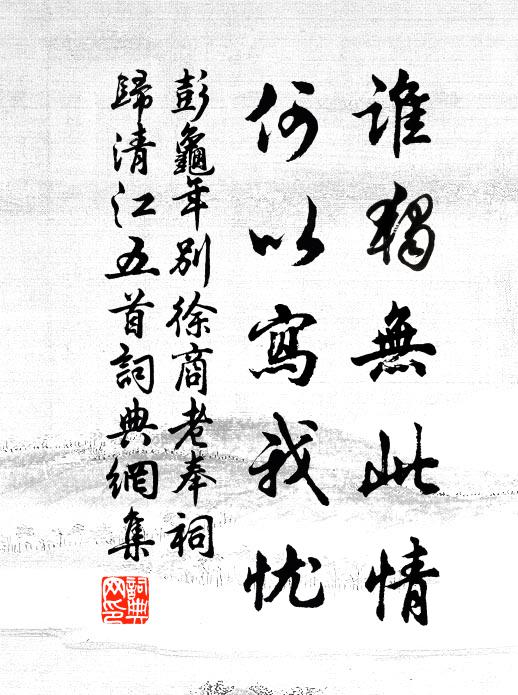 誰獨無此情
何以寫我忧
彭龜年別徐商老奉祠
歸清江五首詞典網集
詞典网印